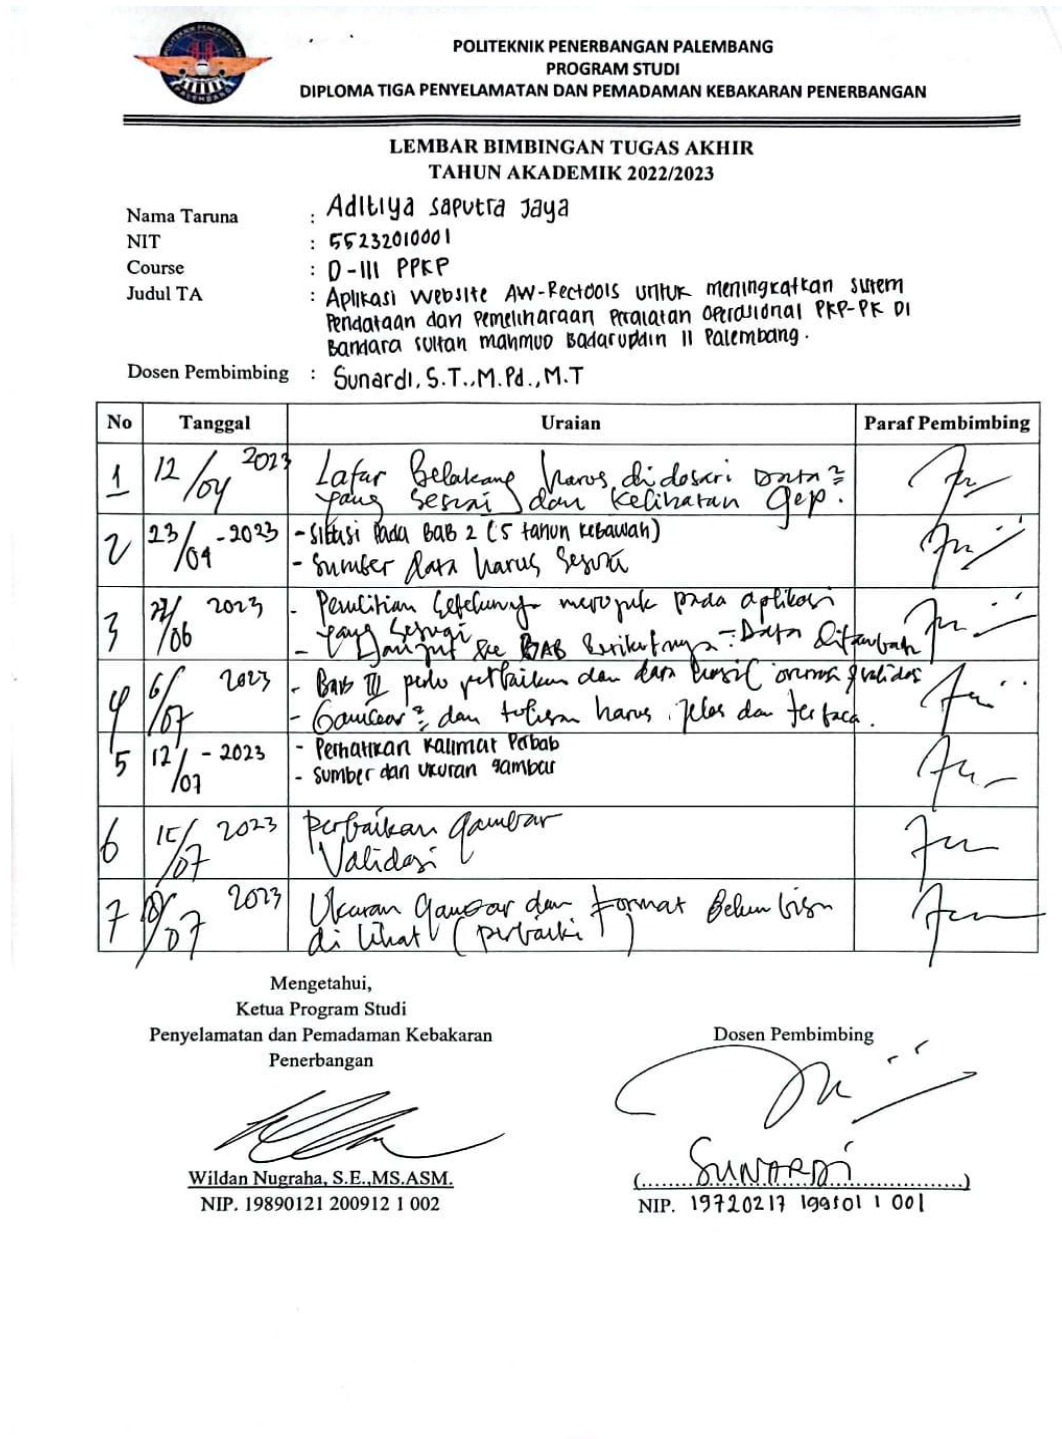 POLITEKNIK PENERBANGAN PALEMBANG
PROGRAM STUDI
DIPLOMA TIGA PENYELAMATAN DAN PEMADAMAN KEBAKARAN PENERBANGAN
LEMBAR BIMBINGAN TUGAS AKHIR
TAHUN AKADEMIK 2022/2023
Nama Taruna : Aditiya Saputra Jaya
NIT : 55232010001
Course : D-III PPKP
Judul TA : Aplikasi Website AW-Rectools untuk meningkatkan sistem
Pendataan dan Pemeliharaan Peralatan Operasional PKP-PK DI
Bandara Sultan Mahmud Badaruddin II Palembang.
Dosen Pembimbing : Sunardi, S.T., M.Pd., M.T
No Tanggal Uraian Paraf Pembimbing
1 12/04 2023 Latar Belakang harus didasari Data²
yang sesuai dan kelihatan gep.
2 23/04 - 2023 - Sitasi Pada BAB 2 (5 tahun kebawah)
- Sumber data harus sesuai
3 /06 2023 - Penelitian sebelumnya merujuk pada aplikasi
yang sesuai
- Lanjut ke BAB berikutnya - Data ditambah
4 6/07 2023 - Bab III perlu perbaikan dan data hasil validas
- Gambar² dan tulisan harus jelas dan terbaca.
5 12/07 - 2023 - Perhatikan kalimat Perbab
- Sumber dan ukuran gambar
6 15/07 2023 Perbaikan gambar
Validasi
7 18/07 2023 Ukuran gambar dan Format Belum bisa
di lihat (perbaiki)
Mengetahui,
Ketua Program Studi
Penyelamatan dan Pemadaman Kebakaran
Penerbangan
Dosen Pembimbing
Wildan Nugraha, S.E.,MS.ASM.
NIP. 19890121 200912 1 002
(SUNARDI)
NIP. 19720217 199501 1 001